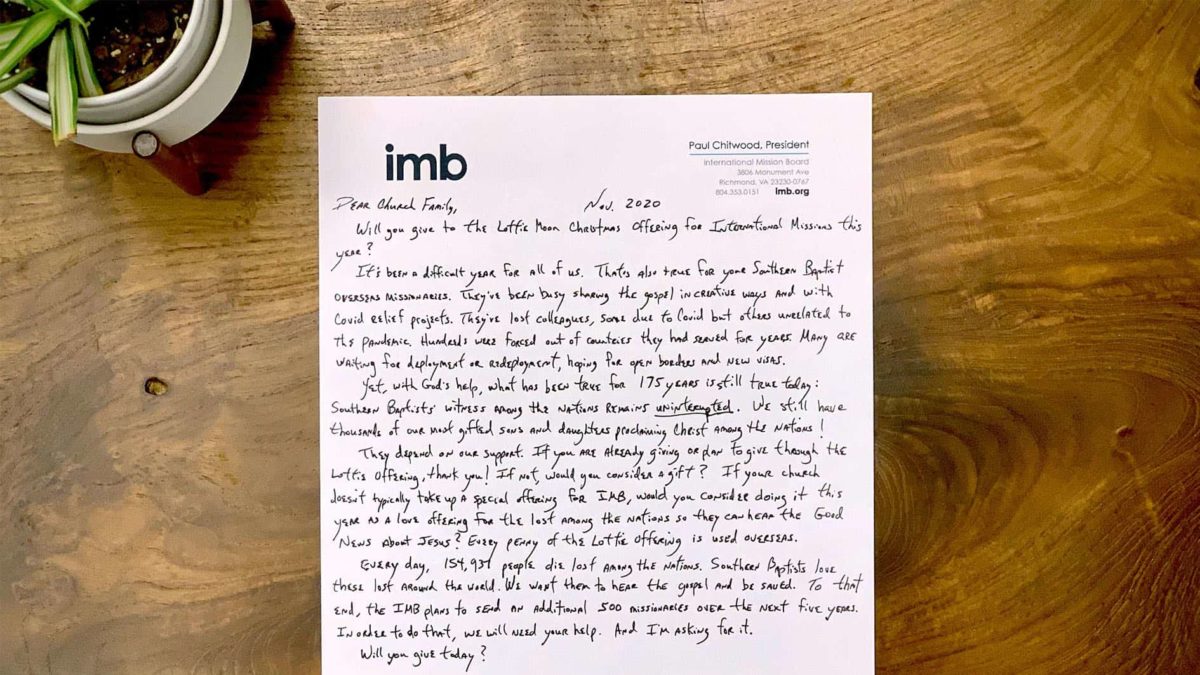 imb
Paul Chitwood, President
International Mission Board
3806 Monument Ave
Richmond, VA 23230-0767
804.353.0151 imb.org
Dear Church Family, Nov. 2020
Will you give to the Lottie Moon Christmas Offering for International Missions this
year?
It's been a difficult year for all of us. That's also true for your Southern Baptist
overseas missionaries. They've been busy sharing the gospel in creative ways and with
Covid relief projects. They've lost colleagues, some due to Covid but others unrelated to
the pandemic. Hundreds were forced out of countries they had served for years. Many are
waiting for deployment or redeployment, hoping for open borders and new visas.
Yet, with God's help, what has been true for 175 years is still true today:
Southern Baptists' witness among the nations remains uninterrupted. We still have
thousands of our most gifted sons and daughters proclaiming Christ among the nations!
They depend on our support. If you are already giving or plan to give through the
Lottie Offering, thank you! If not, would you consider a gift? If your church
doesn't typically take up a special offering for IMB, would you consider doing it this
year as a love offering for the lost among the nations so they can hear the Good
News about Jesus? Every penny of the Lottie Offering is used overseas.
Every day, 154,937 people die lost among the nations. Southern Baptists love
these lost around the world. We want them to hear the gospel and be saved. To that
end, the IMB plans to send an additional 500 missionaries over the next five years.
In order to do that, we will need your help. And I'm asking for it.
Will you give today?